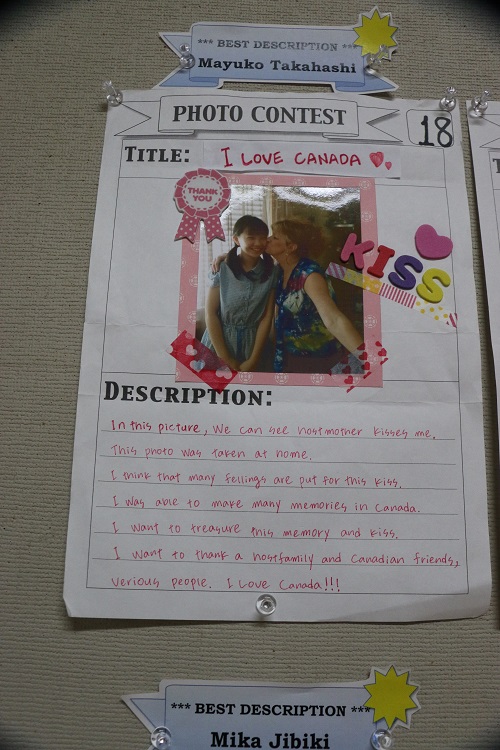 *** BEST DESCRIPTION ***
Mayuko Takahashi
PHOTO CONTEST
18
TITLE: I LOVE CANADA
THANK YOU
KISS
DESCRIPTION:
In this picture, We can see hostmother kisses me.
This photo was taken at home.
I think that many fellings are put for this kiss.
I was able to make many memories in Canada.
I want to treasure this memory and kiss.
I want to thank a hostfamily and Canadian friends,
verious people. I Love Canada!!!
*** BEST DESCRIPTION ***
Mika Jibiki